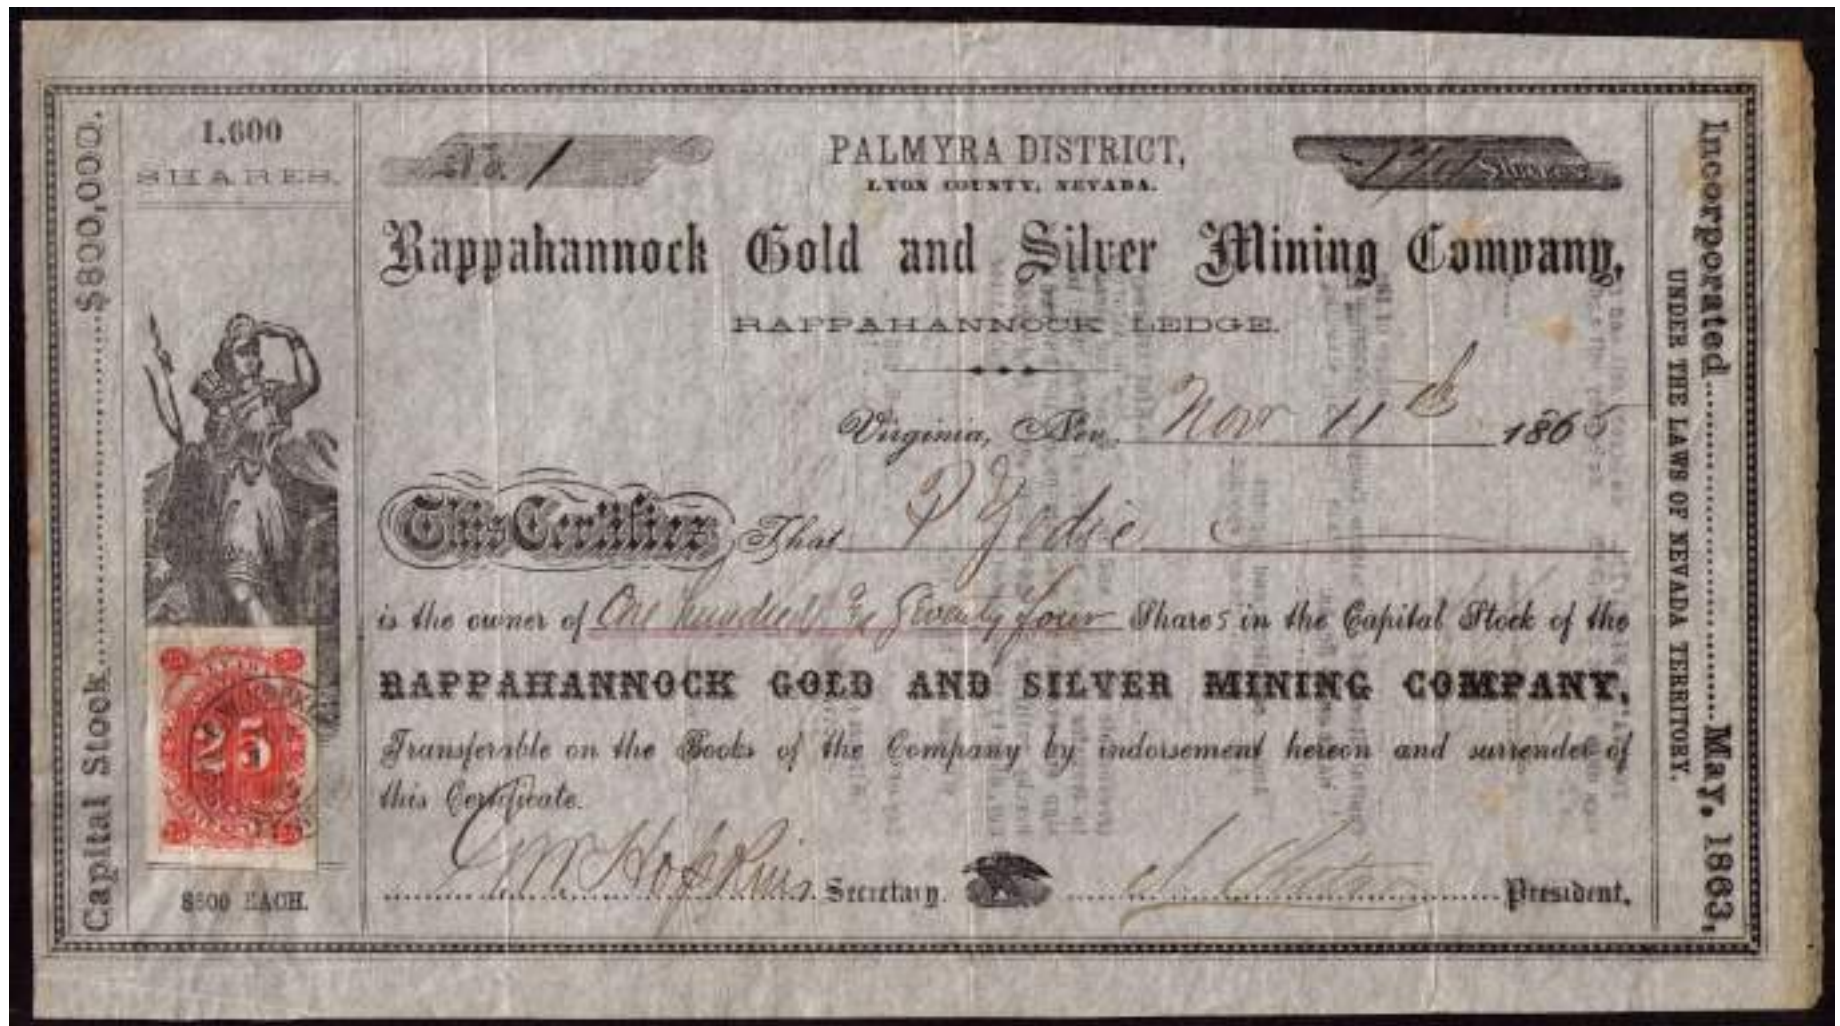 1.600
SHARES.
No. 1
PALMYRA DISTRICT,
LYON COUNTY, NEVADA.
174 Shares
Rappahannock Gold and Silver Mining Company,
RAPPAHANNOCK LEDGE.
Virginia, Nev. Nov 11th 1865
This Certifies That P
is the owner of One hundred & Seventy four Shares in the Capital Stock of the
RAPPAHANNOCK GOLD AND SILVER MINING COMPANY,
Transferable on the Books of the Company by indorsement hereon and surrender of
this Certificate.
Hopkins Secretary. President.
25
$500 EACH.
Capital Stock $800,000.
Incorporated May, 1863,
UNDER THE LAWS OF NEVADA TERRITORY.